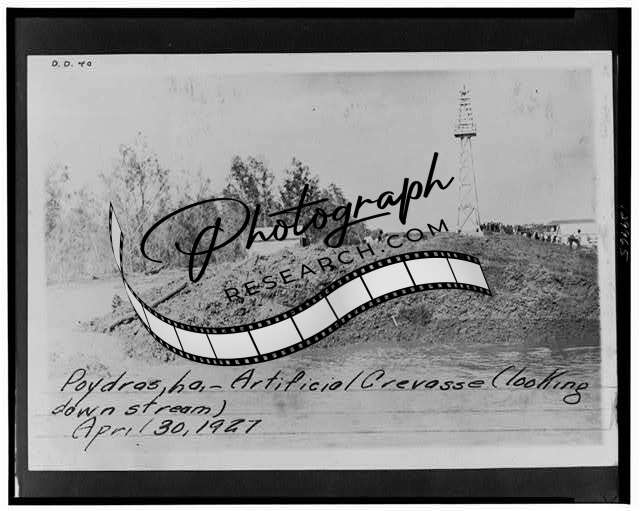 D. D. 40
Photograph
RESEARCH.COM
Poydras, La. – Artificial Crevasse (looking
down stream)
April 30, 1927